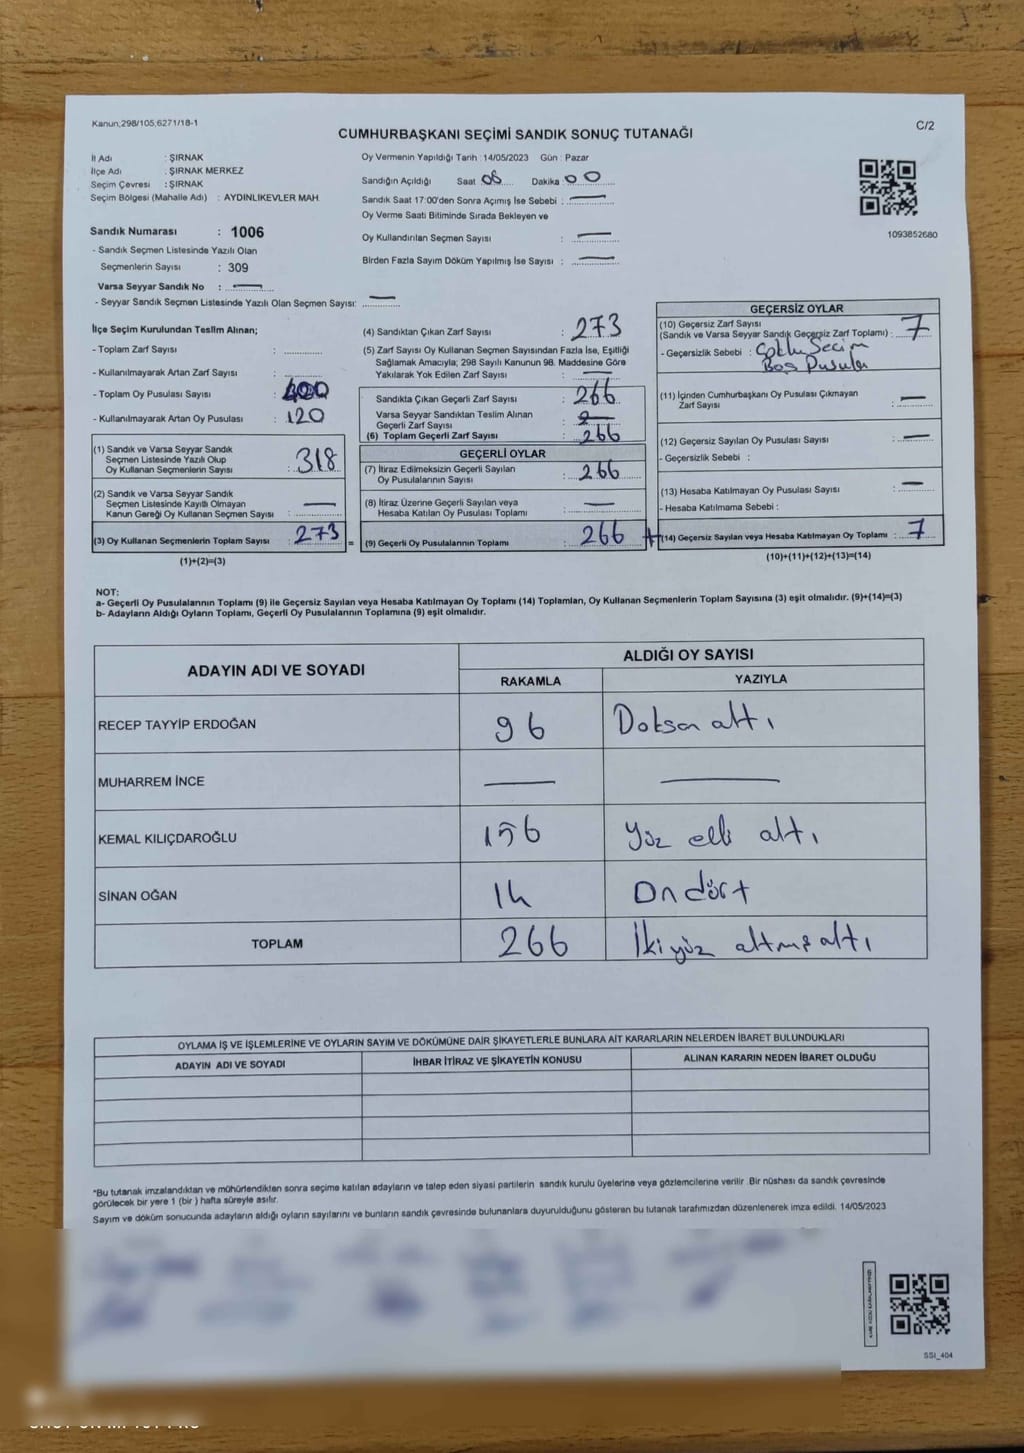 Kanun;298/105,6271/18-1
CUMHURBAŞKANI SEÇİMİ SANDIK SONUÇ TUTANAĞI
C/2
İl Adı : ŞIRNAK
İlçe Adı : ŞIRNAK MERKEZ
Seçim Çevresi : ŞIRNAK
Seçim Bölgesi (Mahalle Adı) : AYDINLIKEVLER MAH.
Oy Vermenin Yapıldığı Tarih : 14/05/2023 Gün : Pazar
Sandığın Açıldığı Saat 08 Dakika 00
Sandık Saat 17:00'den Sonra Açımış İse Sebebi : —
Oy Verme Saati Bitiminde Sırada Bekleyen ve
Oy Kullandırılan Seçmen Sayısı : —
Birden Fazla Sayım Döküm Yapılmış İse Sayısı : —
1093852680
Sandık Numarası : 1006
- Sandık Seçmen Listesinde Yazılı Olan
Seçmenlerin Sayısı : 309
Varsa Seyyar Sandık No : —
- Seyyar Sandık Seçmen Listesinde Yazılı Olan Seçmen Sayısı: —
İlçe Seçim Kurulundan Teslim Alınan;
- Toplam Zarf Sayısı :
- Kullanılmayarak Artan Zarf Sayısı :
- Toplam Oy Pusulası Sayısı : 400
- Kullanılmayarak Artan Oy Pusulası : 120
(1) Sandık ve Varsa Seyyar Sandık
Seçmen Listesinde Yazılı Olup
Oy Kullanan Seçmenlerin Sayısı : 318
(2) Sandık ve Varsa Seyyar Sandık
Seçmen Listesinde Kayıtlı Olmayan
Kanun Gereği Oy Kullanan Seçmen Sayısı : —
(3) Oy Kullanan Seçmenlerin Toplam Sayısı : 273 =
(1)+(2)=(3)
(4) Sandıktan Çıkan Zarf Sayısı : 273
(5) Zarf Sayısı Oy Kullanan Seçmen Sayısından Fazla İse, Eşitliği
Sağlamak Amacıyla; 298 Sayılı Kanunun 98. Maddesine Göre
Yakılarak Yok Edilen Zarf Sayısı : —
Sandıkta Çıkan Geçerli Zarf Sayısı : 266
Varsa Seyyar Sandıktan Teslim Alınan
Geçerli Zarf Sayısı :
(6) Toplam Geçerli Zarf Sayısı : 266
GEÇERLİ OYLAR
(7) İtiraz Edilmeksizin Geçerli Sayılan
Oy Pusulalarının Sayısı : 266
(8) İtiraz Üzerine Geçerli Sayılan veya
Hesaba Katılan Oy Pusulası Toplamı : —
(9) Geçerli Oy Pusulalarının Toplamı : 266 +
GEÇERSİZ OYLAR
(10) Geçersiz Zarf Sayısı
(Sandık ve Varsa Seyyar Sandık Geçersiz Zarf Toplamı) : 7
- Geçersizlik Sebebi : Çoklu Seçim
Boş Pusula
(11) İçinden Cumhurbaşkanı Oy Pusulası Çıkmayan
Zarf Sayısı : —
(12) Geçersiz Sayılan Oy Pusulası Sayısı : —
- Geçersizlik Sebebi :
(13) Hesaba Katılmayan Oy Pusulası Sayısı : —
- Hesaba Katılmama Sebebi :
(14) Geçersiz Sayılan veya Hesaba Katılmayan Oy Toplamı : 7
(10)+(11)+(12)+(13)=(14)
NOT:
a- Geçerli Oy Pusulalarının Toplamı (9) ile Geçersiz Sayılan veya Hesaba Katılmayan Oy Toplamı (14) Toplamları, Oy Kullanan Seçmenlerin Toplam Sayısına (3) eşit olmalıdır. (9)+(14)=(3)
b- Adayların Aldığı Oyların Toplamı, Geçerli Oy Pusulalarının Toplamına (9) eşit olmalıdır.
ADAYIN ADI VE SOYADI
ALDIĞI OY SAYISI
RAKAMLA YAZIYLA
RECEP TAYYİP ERDOĞAN 96 Doksan altı
MUHARREM İNCE — —
KEMAL KILIÇDAROĞLU 156 Yüz elli altı
SİNAN OĞAN 14 On dört
TOPLAM 266 İki yüz altmış altı
OYLAMA İŞ VE İŞLEMLERİNE VE OYLARIN SAYIM VE DÖKÜMÜNE DAİR ŞİKAYETLERLE BUNLARA AİT KARARLARIN NELERDEN İBARET BULUNDUKLARI
ADAYIN ADI VE SOYADI İHBAR İTİRAZ VE ŞİKAYETİN KONUSU ALINAN KARARIN NEDEN İBARET OLDUĞU
*Bu tutanak imzalandıktan ve mühürlendikten sonra seçime katılan adayların ve talep eden siyasi partilerin sandık kurulu üyelerine veya gözlemcilerine verilir .Bir nüshası da sandık çevresinde
görülecek bir yere 1 (bir ) hafta süreyle asılır.
Sayım ve döküm sonucunda adayların aldığı oyların sayılarını ve bunların sandık çevresinde bulunanlara duyurulduğunu gösteren bu tutanak tarafımızdan düzenlenerek imza edildi. 14/05/2023
SSI_404